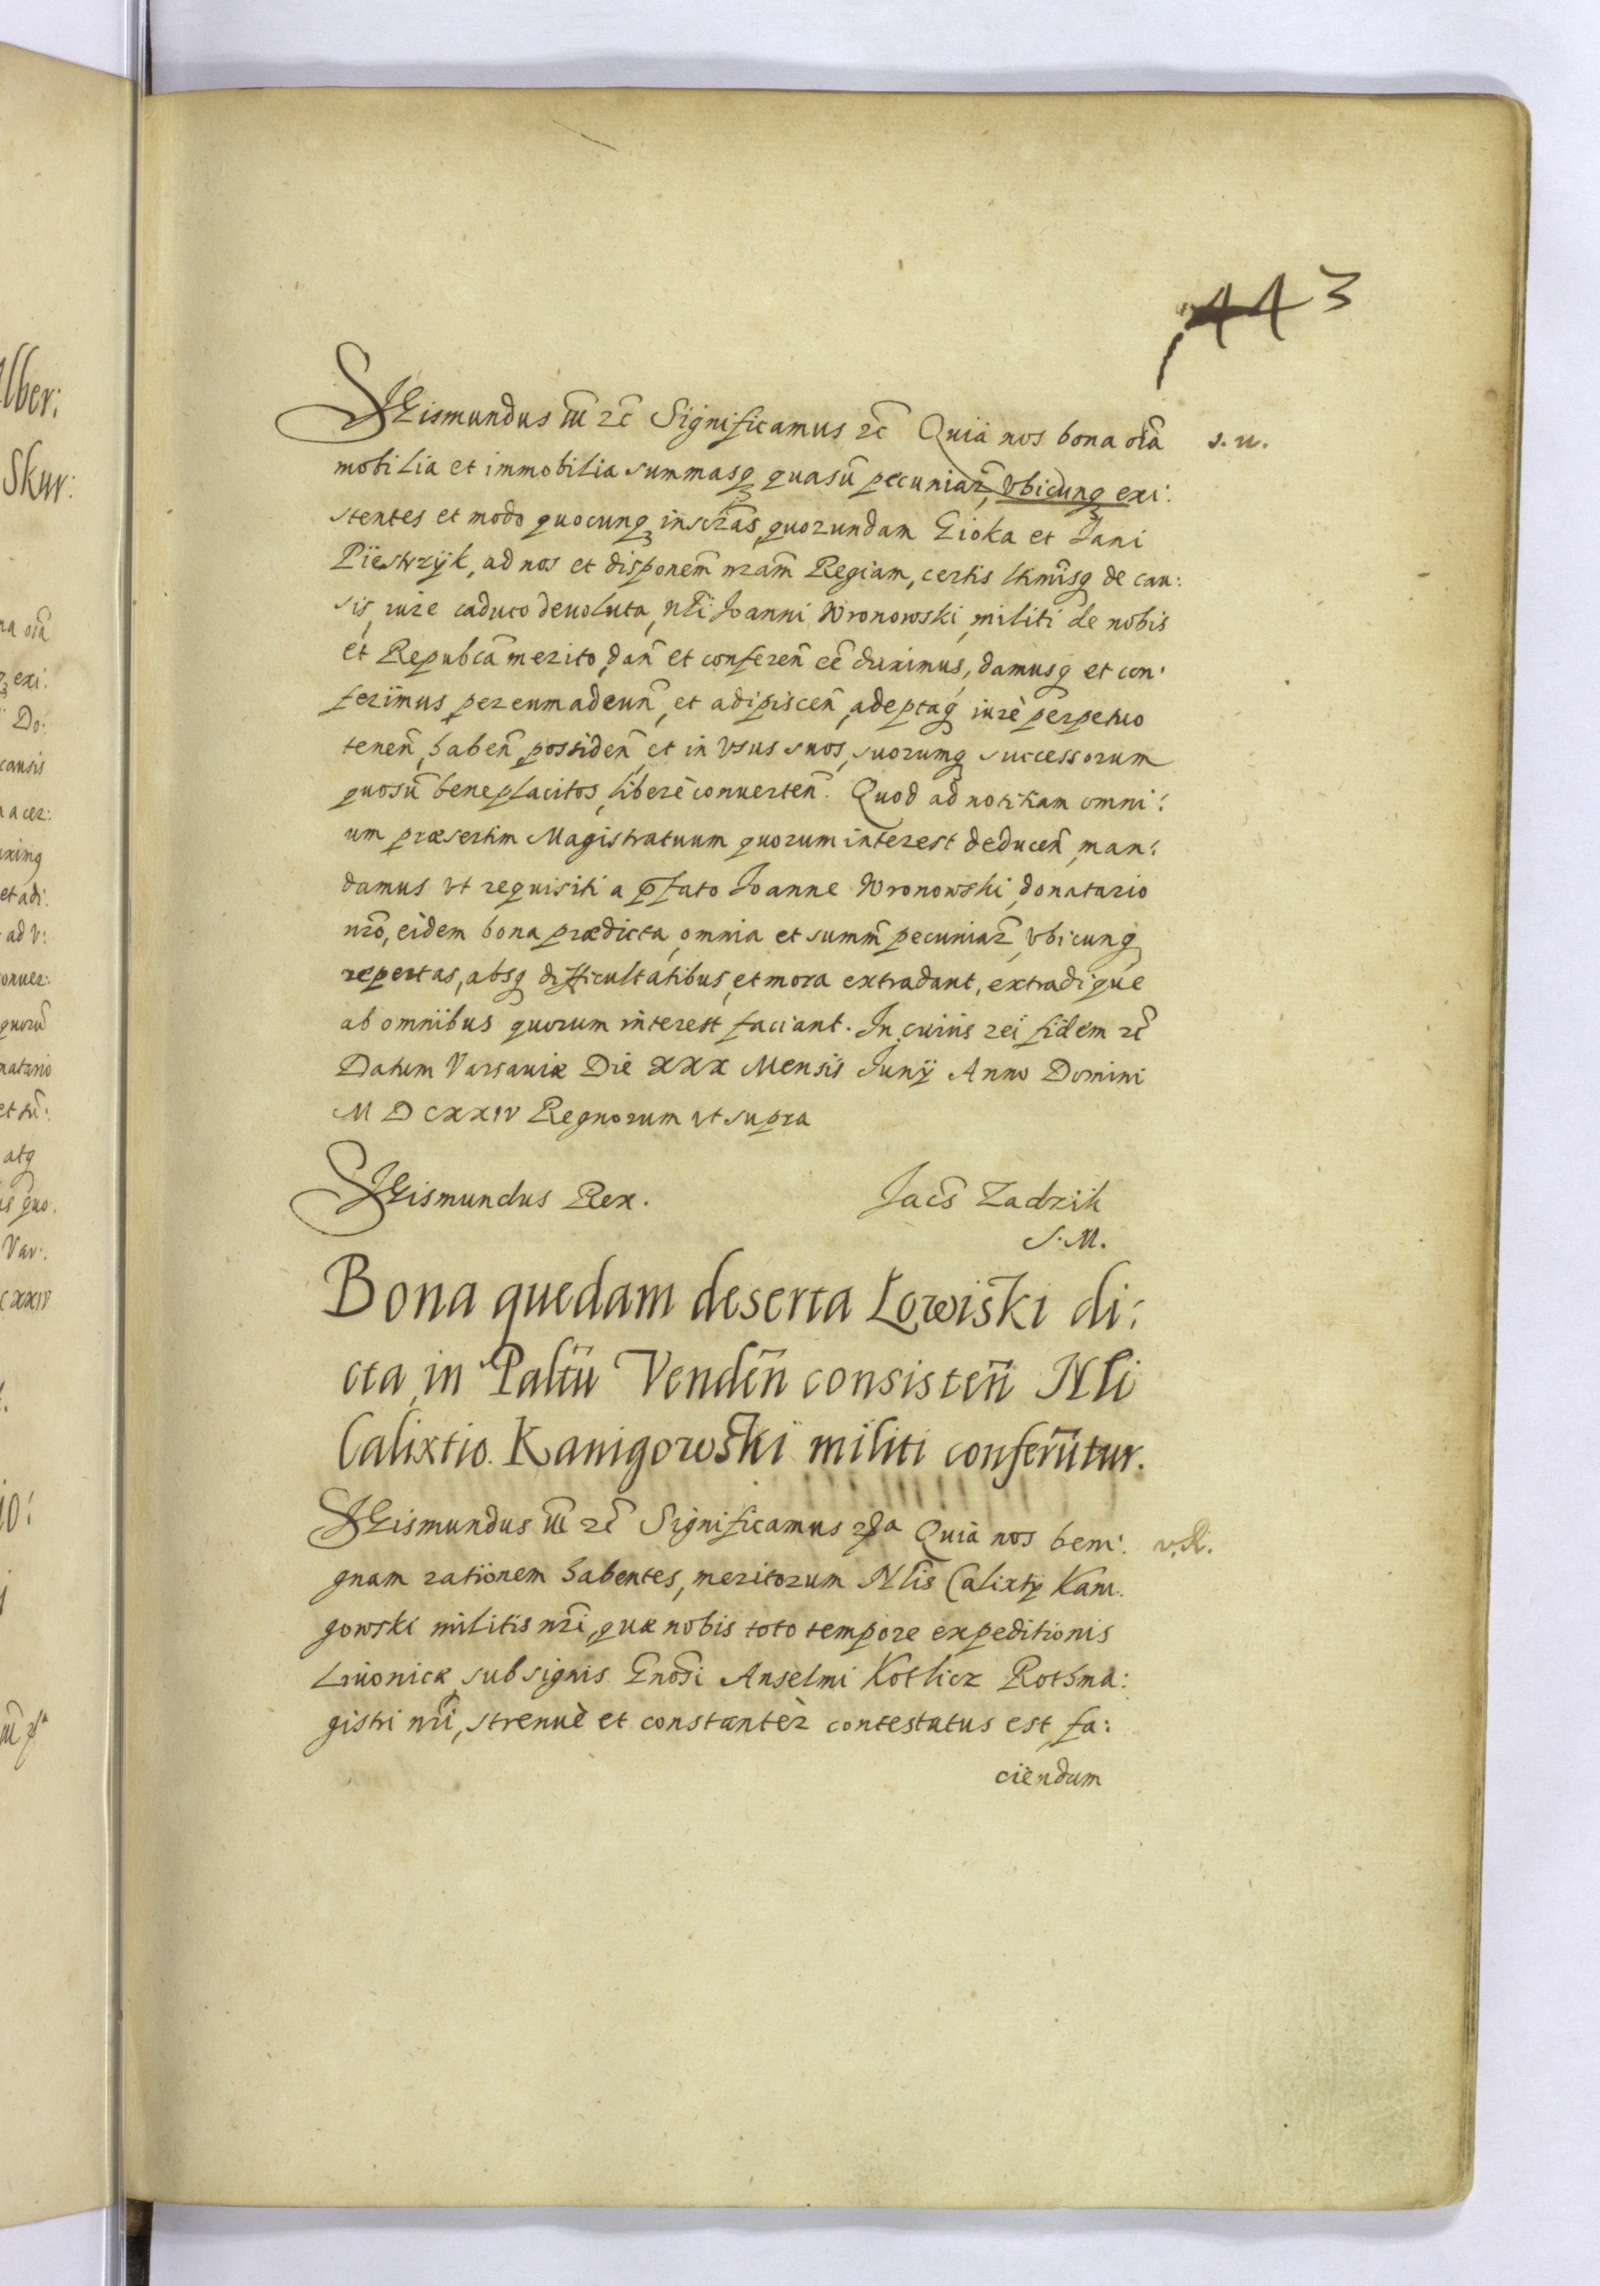 443
SIGismundus III &c Significamus &c Quia nos bona oīa s. u.
mobilia et immobilia summasq₃ quasũ pecuniar̃, vbicunq₃ exi:
stentes et modo quocunq₃ inscr̃as, quorundam Gioka et Jani
Piestrzÿk, ad nos et disponem̃ nr̃am Regiam, certis ltimĩsq₃ de cau:
sis, iure caduco deuoluta, Nłi Joanni Wronowski, militi de nobis
et Repubca͂ merito, dan̄ et conferen̄ ee͂ duximus, damusq₃ et con:
ferimus, per eum adeun̄, et adipiscen̄, adeptaq₃ iurè perpetuo
tenen̄, haben̄, possiden̄, et in vsus suos, suorumq₃ successorum
quosũ beneplacitos, liberè conuerten̄. Quod ad notitiam omni:
um præsertim Magistratuum quorum interest deducen̄, man:
damus vt requisiti a p̄fato Joanne Wronowski, donatario
nr̃o, eidem bona prædicta, omnia et summ̃ pecuniar̃, vbicunq₃
repertas, absq₃ difficultatibus, et mora extradant, extradique
ab omnibus quorum interest faciant. In cuius rei fidem &c
Datum Varsauiæ Die XXX Mensis Junÿ Anno Domini
M D CXXIV Regnorum vt supra
SIGismundus Rex. Jacs̃ Zadzik
S. M.
Bona quedam deserta Łowiski di:
cta, in Pałtũ Venden̄ consisten̄ Nłi
Calixtio Kanigowski militi conferũtur.
SIGismundus III &c Significamus &a Quia nos beni:
gnam rationem habentes, meritorum Nłis Calixtÿ Kani
gowski militis nr̃i, quæ nobis toto tempore expeditionis
Liuonicæ, sub signis Gnosĩ Anselmi Kotlicz Rothma:
gistri nr̃i, strenuè et constantèr contestatus est, fa:
ciendum